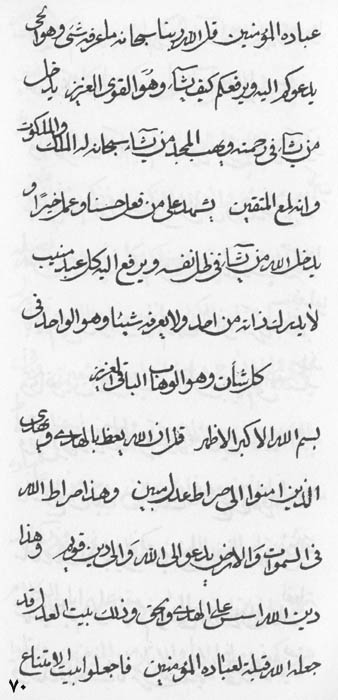 عباده المؤمنين قل الله ربنا سبحانه ما عرفه شئ وهو الحی
يدعوكم اليه ويرفعكم كيف يشآء وهو القوى العزيز يدخل
من يشآء فى رحمته ويهب المجد من يشآء سبحانه له الملك والملكوت
وانه لمع المتقين يشهد على من فعل حسنا وعمل خيرا و
يدخل الله من يشآء فى ظل نفسه ويرفع اليه كل عبد منيب
لا يدرك ذاته من احد ولا يعرفه شيئا وهو الواحد فى
كل شأن وهو الوهاب الباقى العزيز
بسم الله الاكبر الاظهر قل ان الله يعظ بالهدى ويهدى
الذين امنوا الى صراط عدل مبين وهذا صراط الله
فى السموات والارض يدعو الى الله والى دين قويم وهذا
دين الله اسس على الهدى والحق وذلك بيت العدل قد
جعله الله قبلة لعباده المؤمنين فاجعلوا بيت الامتناع
٧٠